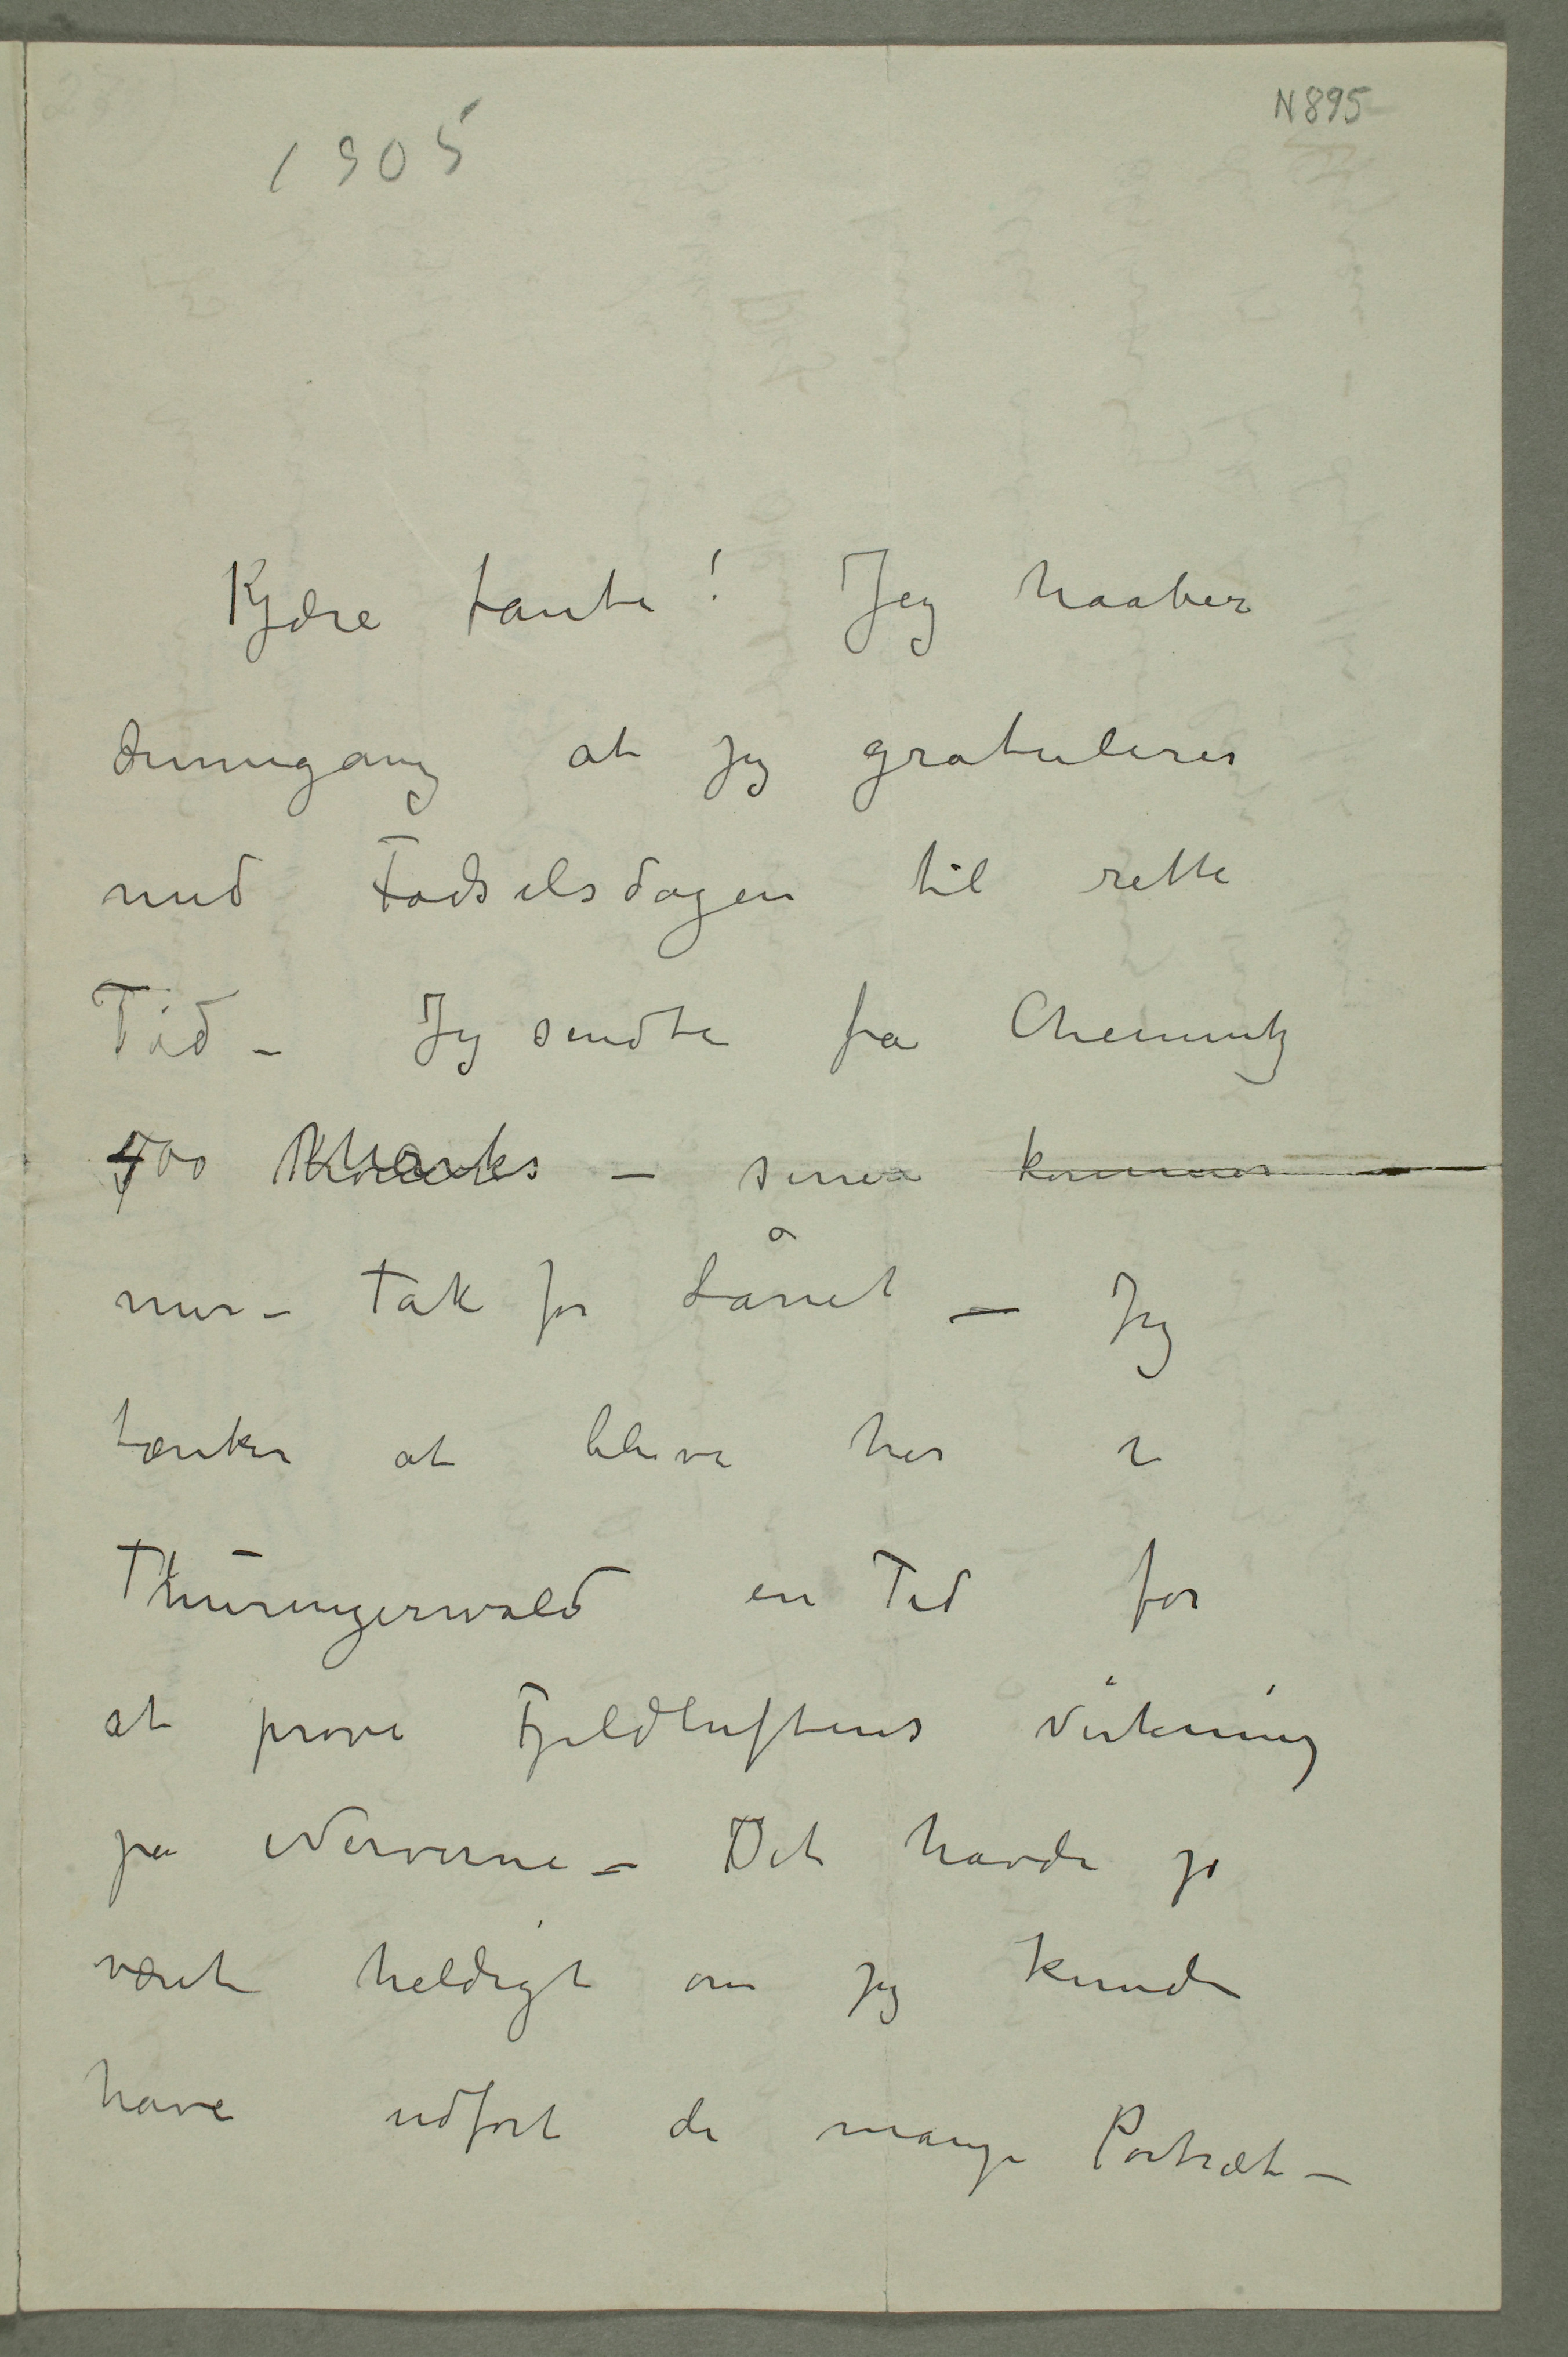 N 895
1905
Kjære tante! Jeg haaber
dennegang at jeg gratulerer
med Fødselsdagen til rette
Tid – Jeg sendte fra Chemnitz
400 Marks – senere kommer –
mer – Tak for Lånet – Jeg
tænker at blive her i
Thüringerwald en Tid for
at prøve Fjeldluftens Virkning
på Nerverne – Det havde jo
været heldigt om jeg kunde
have udført de mange Portræt –